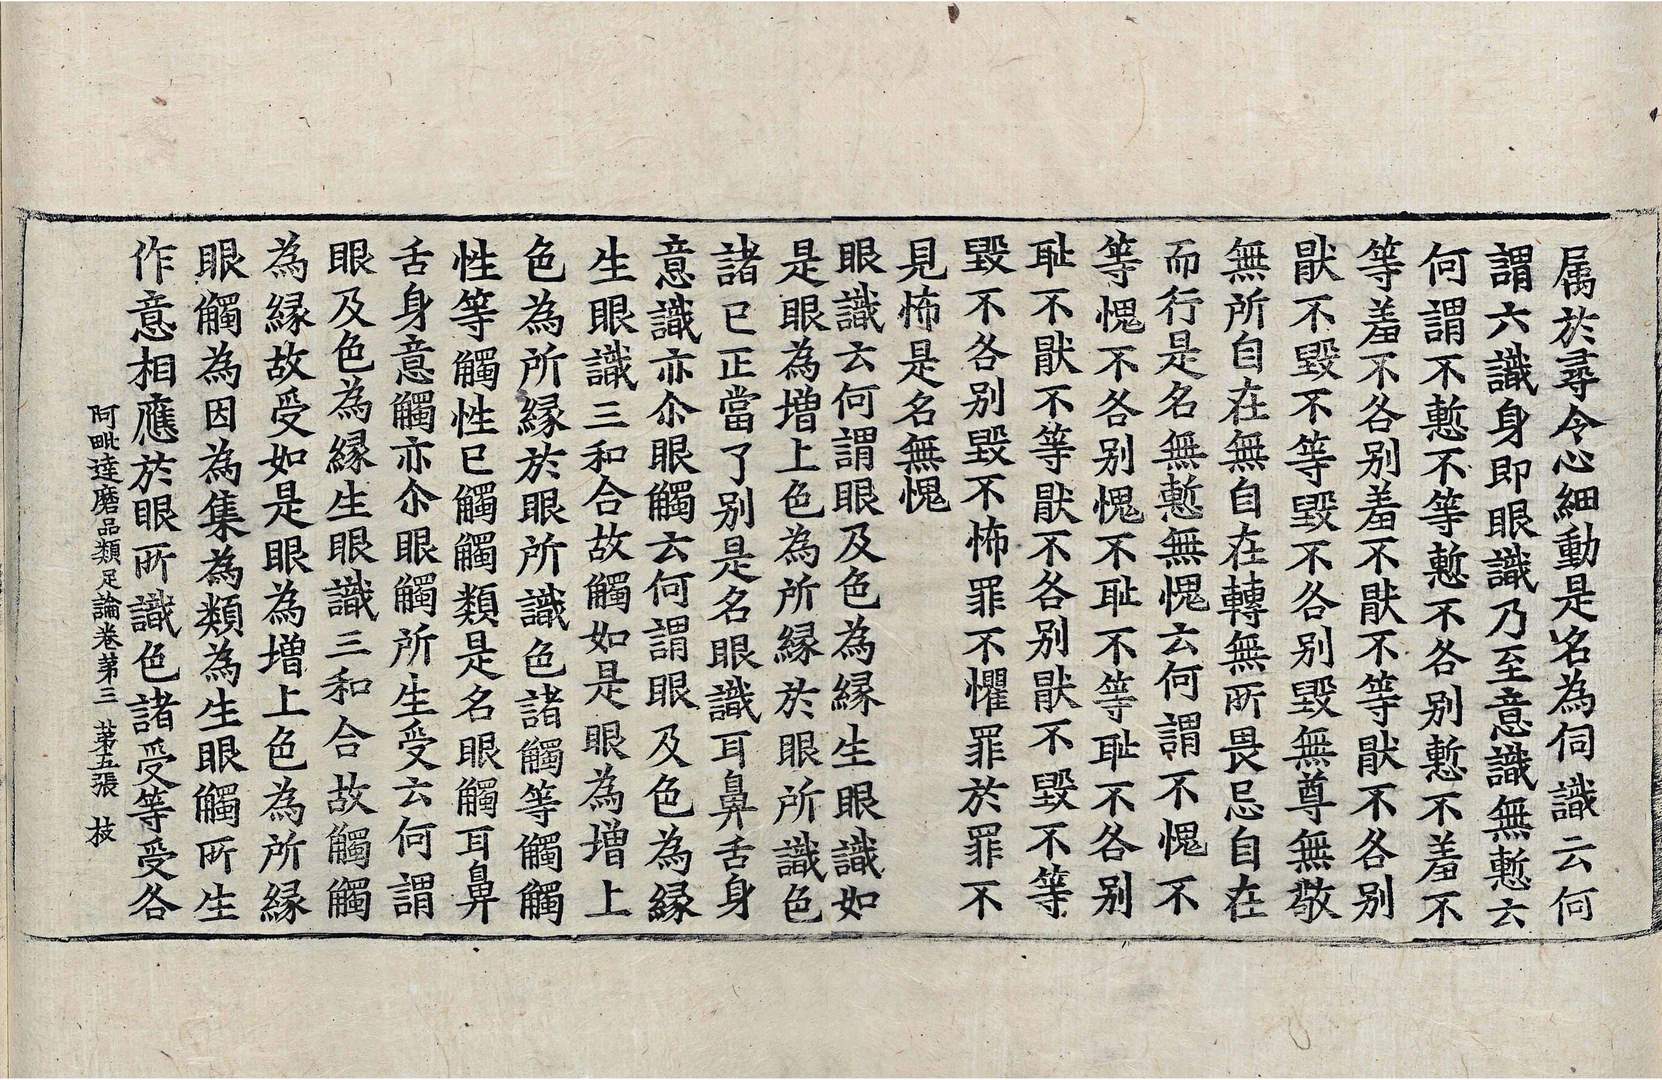 属於尋令心細動是名為伺識云何
謂六識身即眼識乃至意識無慙云
何謂不慙不等慙不各别慙不羞不
等羞不各别羞不猒不等猒不各别
猒不毀不等毀不各别毀無尊無敬
無所自在無自在轉無所畏忌自在
而行是名無慙無愧云何謂不愧不
等愧不各别愧不耻不等耻不各别
耻不猒不等猒不各别猒不毀不等
毀不各别毀不怖罪不懼罪於罪不
見怖是名無愧
眼識云何謂眼及色為縁生眼識如
是眼為增上色為所縁於眼所識色
諸已正當了别是名眼識耳鼻舌身
意識亦尒眼觸云何謂眼及色為縁
生眼識三和合故觸如是眼為增上
色為所縁於眼所識色諸觸等觸觸
性等觸性已觸觸類是名眼觸耳鼻
舌身意觸亦尒眼觸所生受云何謂
眼及色為縁生眼識三和合故觸觸
為縁故受如是眼為增上色為所縁
眼觸為因為集為類為生眼觸所生
作意相應於眼所識色諸受等受各
阿毗達磨品類足論卷第三 第五張 枝